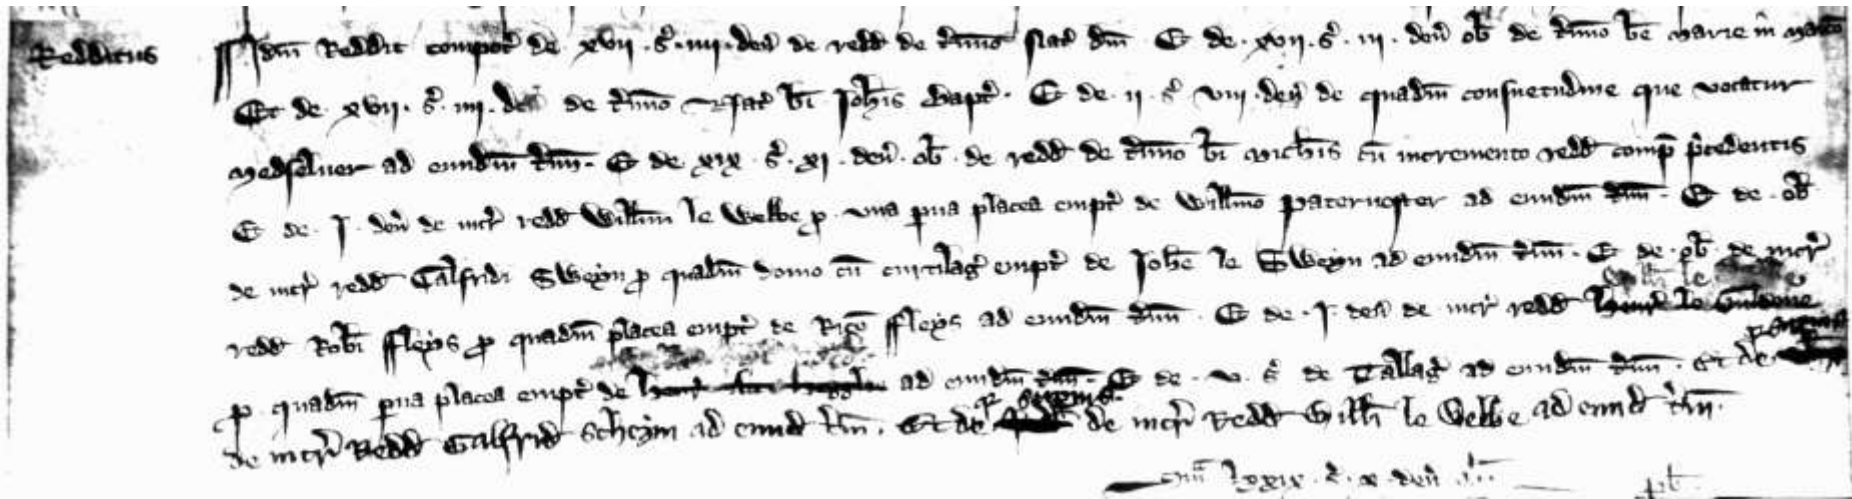 Redditus
Idm Reddit compot de xvii. s. iiii. den de redd de tmino Nat dni Et de. xvii. s. iii. den ob de tmino be marie in marcio
Et de xvii. s. iiii. den de tmino Nat bi Johis Bapt. Et de. ii. s viii. den de quadm consuetudine que vocatur
medselver ad eundm tmin. Et de xix. s. xi. den. ob. de redd de tmino bi Michis cu incremento redd comp pcedentis
Et de. I. den de incr redd Willmi le Webbe p. una pua placea empt de Willmo Paternoster ad eundm tmin. Et de. ob
de incr redd Galfridi Sweyn p quadm domo cu curtilag empt de Johe le Sweyn ad eundm tmin. Et de. ob de incr
redd Robi ffleys p quadm placea empt de Rico ffleys ad eundm tmin. Et de. I. den de incr redd
p. quadm pua placea empt de ad eundm tmin. Et de. v. s de Tallag ad eundm tmin. Et de
de incr Redd Galfrid Scheyin ad eund tmin. Et de de incr Redd Willi le Webbe ad eund tmin.
Sm lxxix. s. x. den